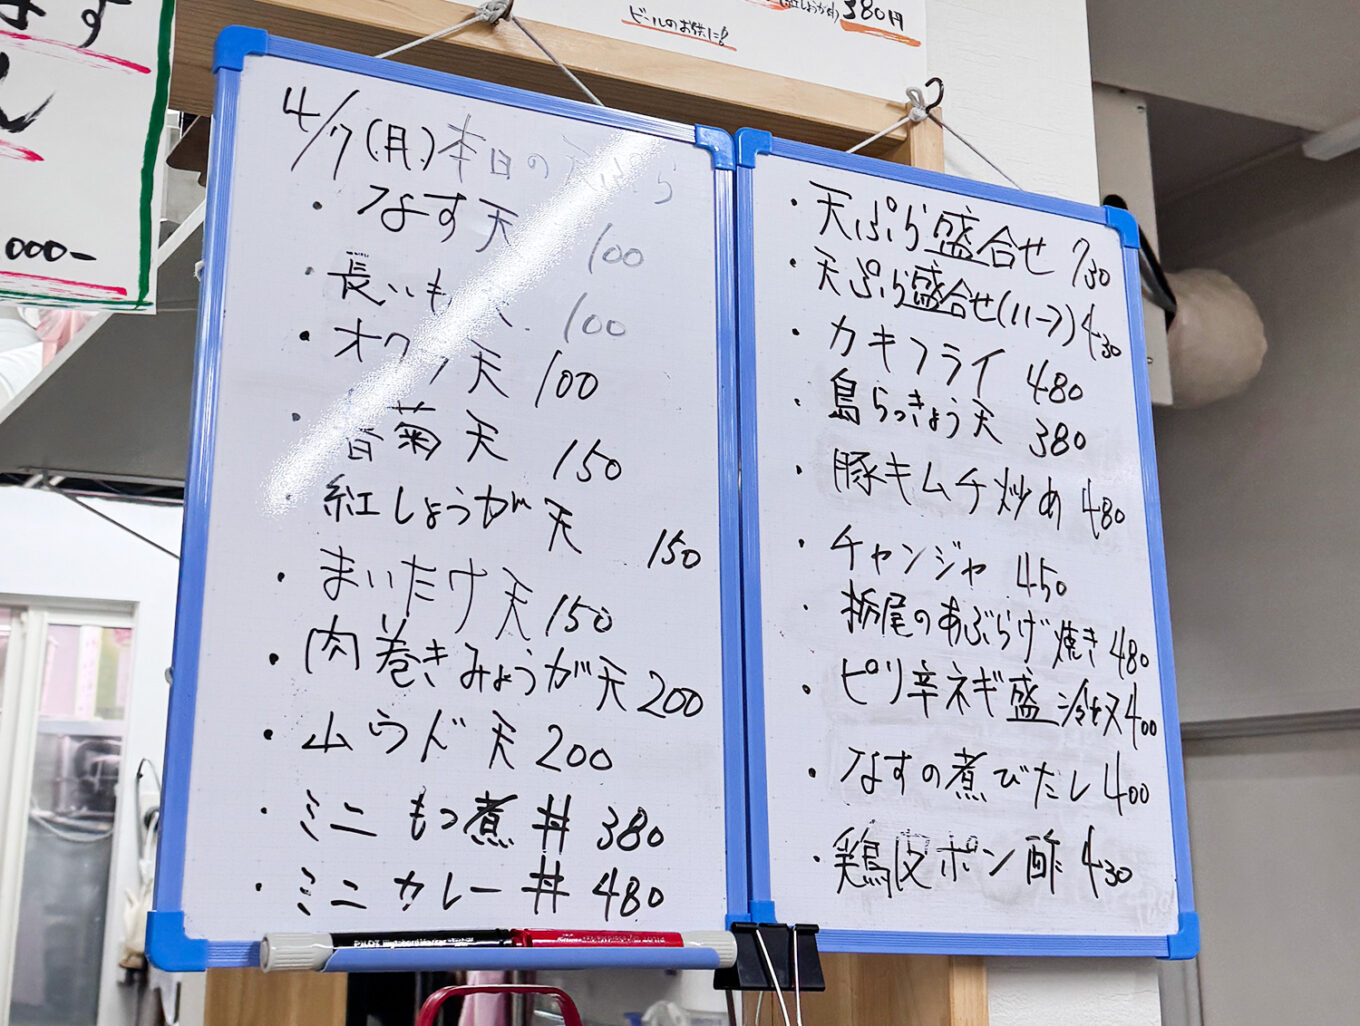 ビールのお供に!
380円
000-
4/7(月)本日の天ぷら
・なす天 100
・長いも天 100
・オクラ天 100
・春菊天 150
・紅しょうが天 150
・まいたけ天 150
・肉巻きみょうが天 200
・ムウド天 200
・ミニもつ煮丼 380
・ミニカレー丼 480
PILOT
・天ぷら盛合せ 730
・天ぷら盛合せ(ハーフ) 430
・カキフライ 480
・島らっきょう天 380
・豚キムチ炒め 480
・チャンジャ 450
・栃尾のあぶらげ焼き 480
・ピリ辛ネギ盛冷奴 400
・なすの煮びたし 400
・鶏皮ポン酢 430